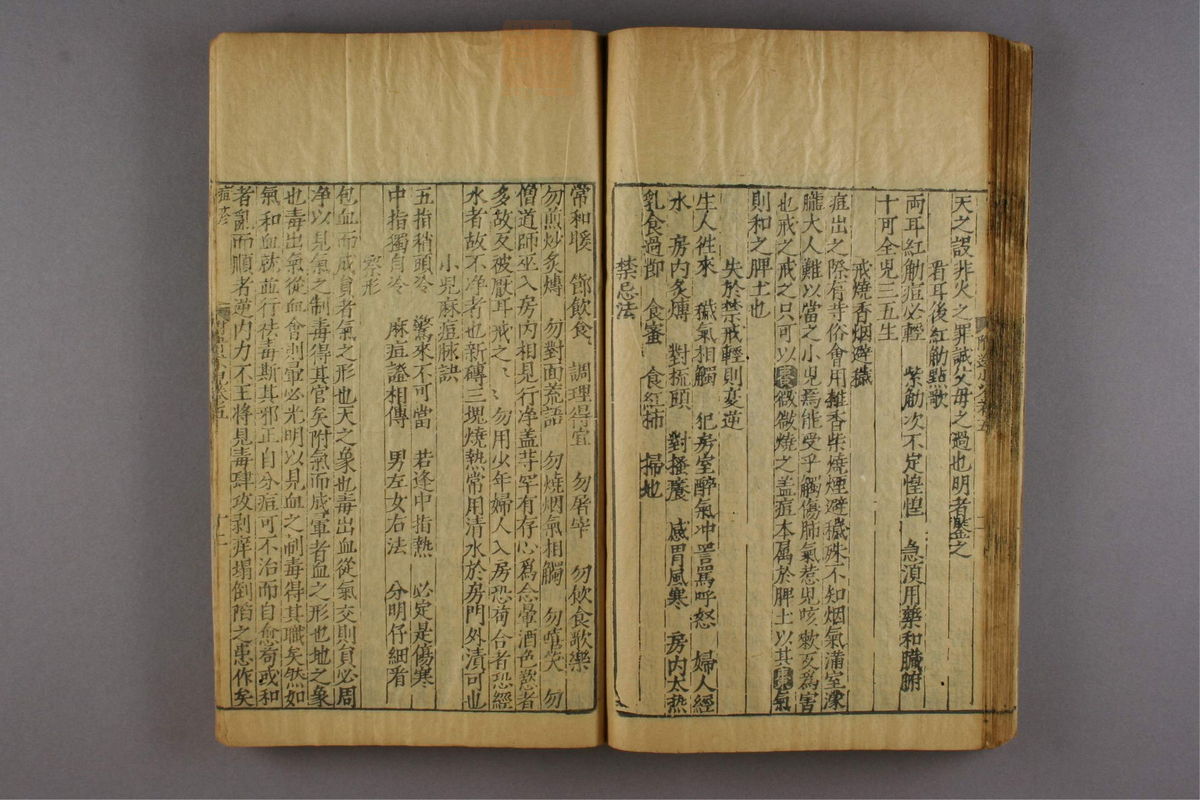 天之誤非火之罪誠父母之過也明者鑒之
看耳後紅觔點歌
両耳紅觔痘必輕 紫觔次不定惶惶 急湏用藥和臟腑
十可全兇三五生
戒燒香烟避穢
痘出之際有等俗會用雄香柴燒煙避穢殊不知烟氣蒲室濛
朧大人難以當之小児焉能受乎觸傷肺氣惹児咳嗽反為害
也戒之戒之只可以棗微微燒之盖痘本属於脾土以其棗氣
則和之脾土也
失於禁戒輕則変逆
生人徃來 穢氣相觸 犯房室醉氣冲詈罵呼怒 婦人經
水 房内炙煿 對梳頭 對搔癢 感冒風寒 房内太热
乳食過節 食蜜 食紅柿 掃地
禁忌法
常和暖 節飲食 調理得宜 勿屠宰 勿飲食歌樂
勿煎炒炙煿 勿對面荒語 勿燒烟氣相觸 勿嘻笑 勿
僧道師巫入房内相見行净盖等罕有存心為念暈酒色慾者
多故反被厭耳戒之 勿用少年婦人入房恐荷合者恐經
水者故不净者也新磚三塊燒熱常用清水於房門外漬可也
小児麻痘脉訣
五指稍頭冷 驚來不可當 若逢中指熱 必定是傷寒
中指獨自冷 麻痘證相傳 男左女右法 分明仔細看
察形
包血而成貟者氣之形也天之象也毒出血從氣交則貟必周
净以見氣之制毒得其官矣附氣而成暈者血之形也地之象
也毒出氣從血會則暈必光明以見血之制毒得其職矣然如
氣和血就並行祛毒斯其邪正自分痘可不治而自愈苟或和
者亂而順者逆内力不王將見毒肆攻剥痒塌倒陷之患作矣